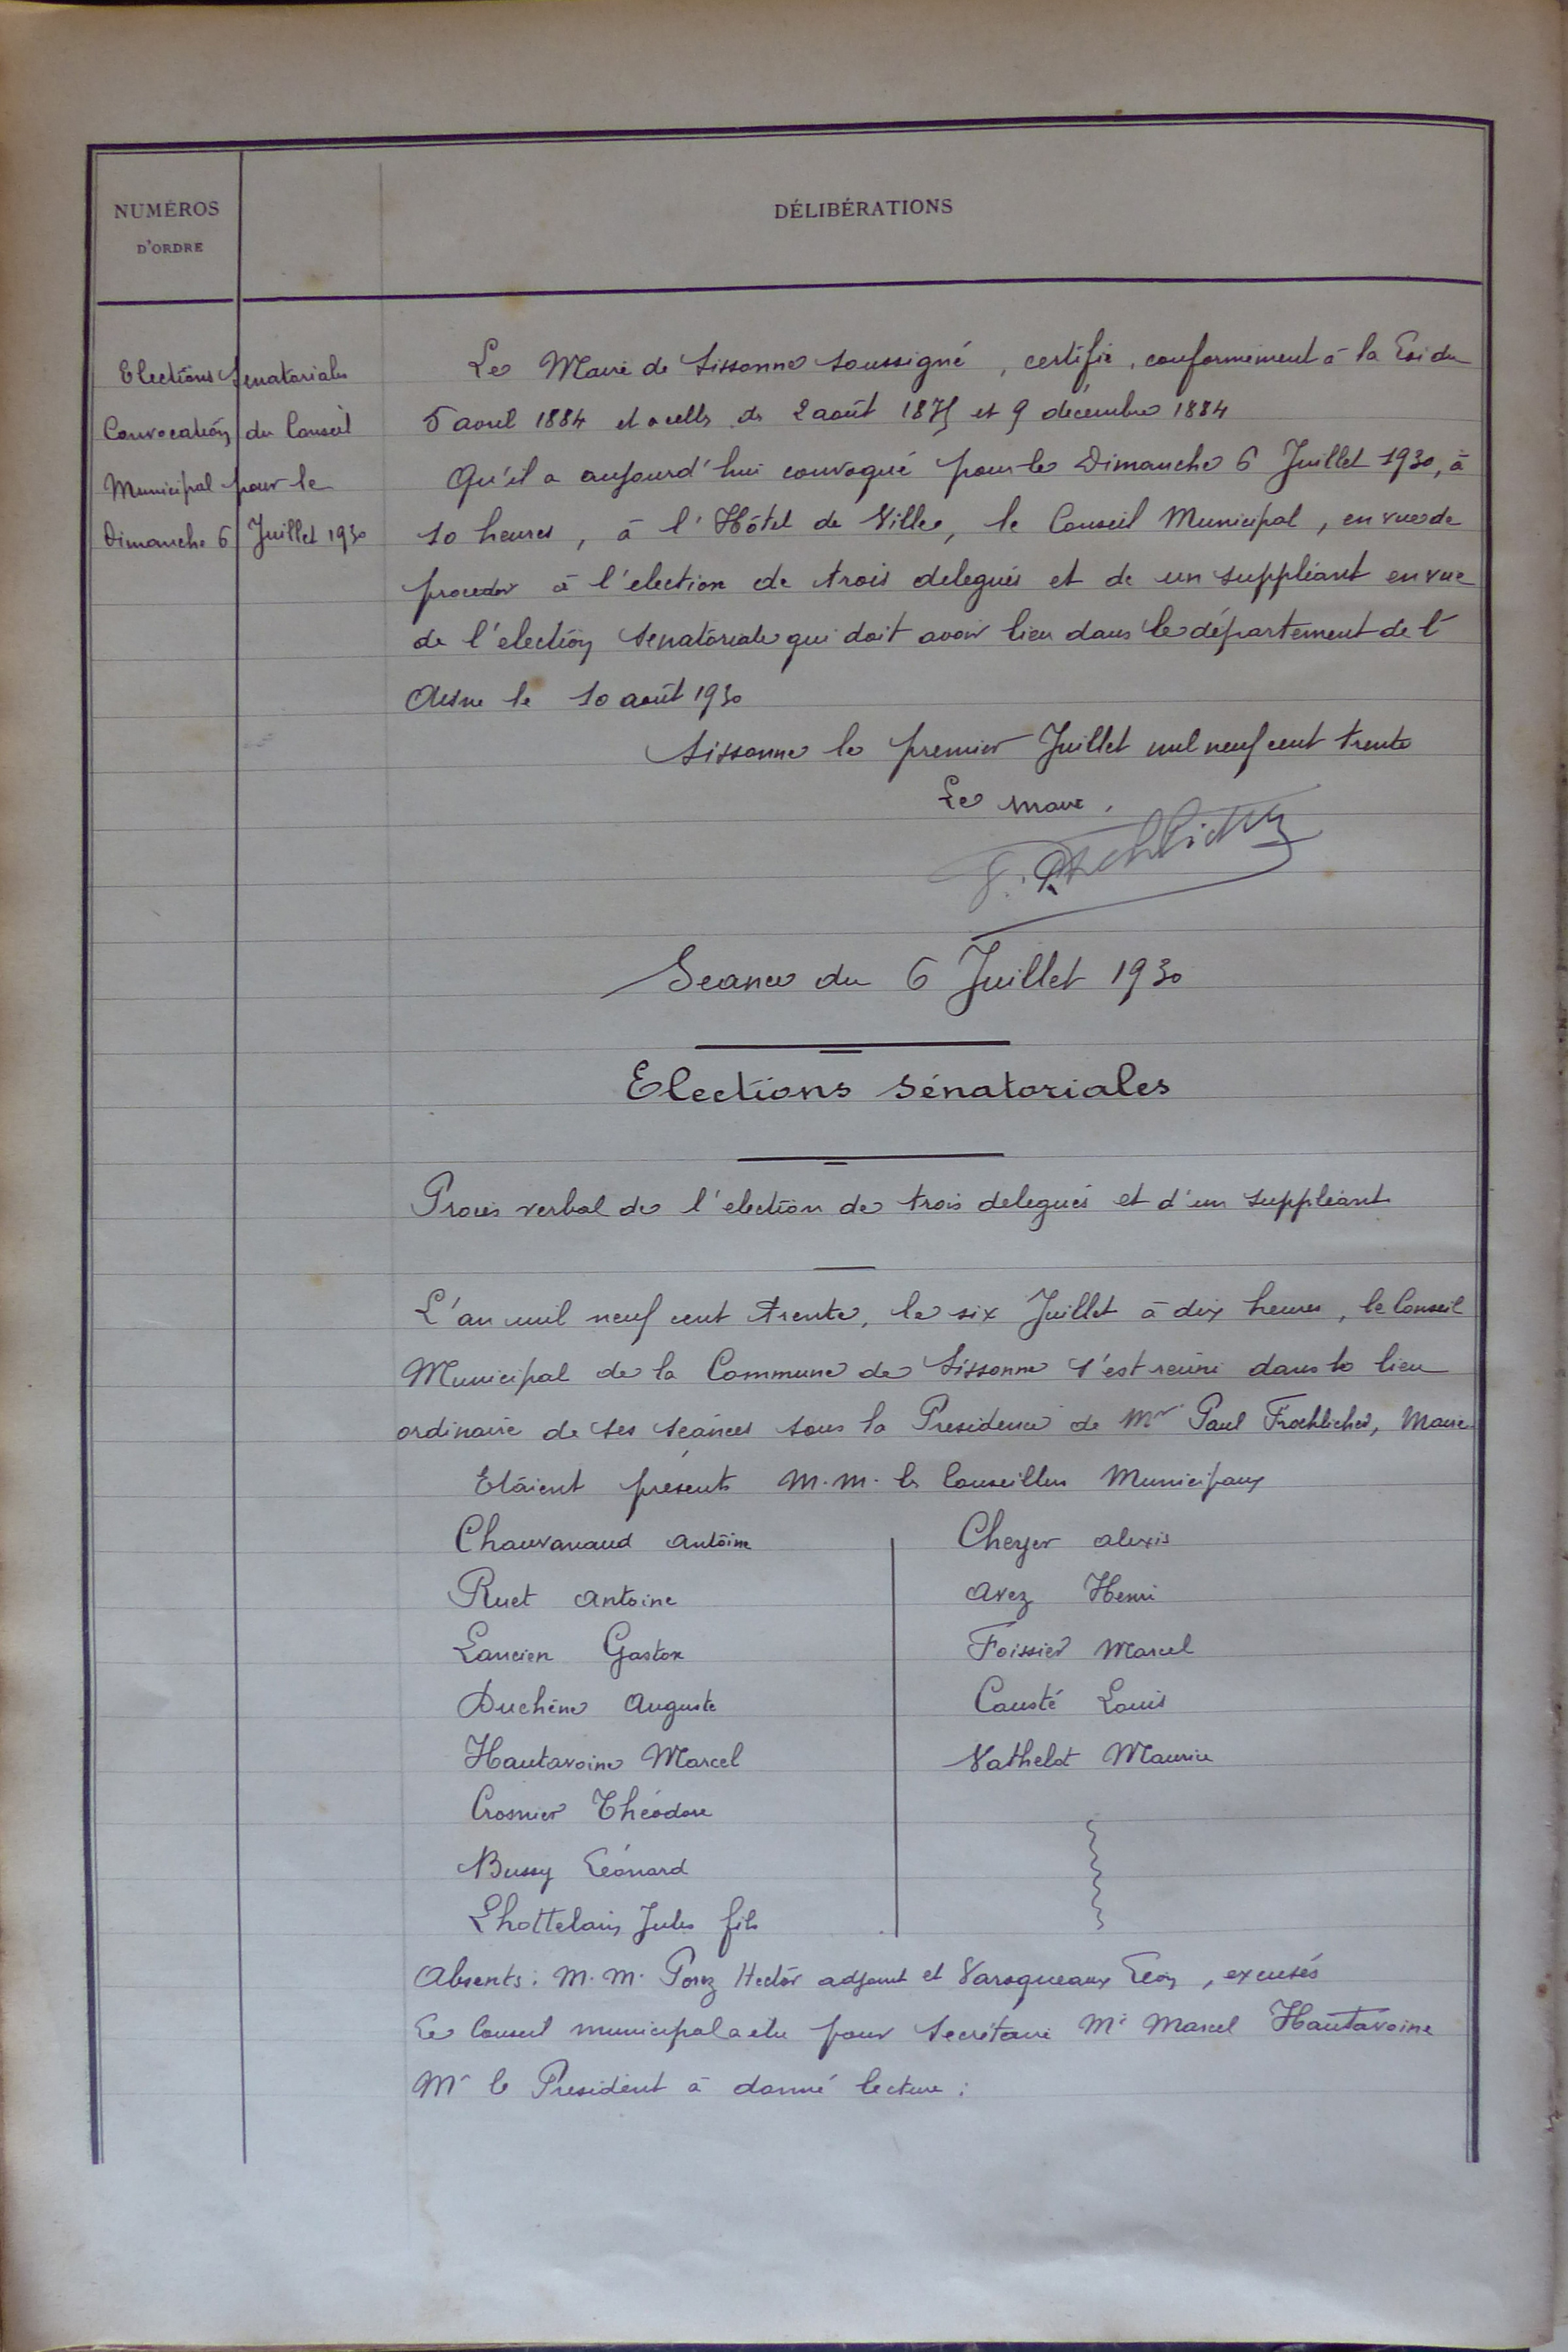 NUMÉROS
D'ORDRE
DÉLIBÉRATIONS
Elections Senatoriales
Convocation du Conseil
Municipal pour le
Dimanche 6 Juillet 1930
Le Maire de Sissonne soussigné, certifie, conformément à la Loi du
5 avril 1884 et celles de 2 août 1875 et 9 décembre 1884
Qu'il a aujourd'hui convoqué pour le Dimanche 6 Juillet 1930, à
10 heures, à l'Hôtel de Ville, le Conseil Municipal, en vue de
proceder à l'election de trois delegués et de un suppléant en vue
de l'election Senatoriale qui doit avoir lieu dans le département de l'
Aisne le 10 août 1930
Sissonne le premier Juillet mil neuf cent trente
Le maire,
Seance du 6 Juillet 1930
Elections Sénatoriales
Procès verbal de l'election de trois delegués et d'un suppléant
L'an mil neuf cent trente, le six Juillet à dix heures, le Conseil
Municipal de la Commune de Sissonne s'est reuni dans le lieu
ordinaire de ses séances sous la Presidence de Mr Paul Froehlicher, Maire
Etaient présents M.M. les Conseillers Municipaux
Chauvanaud Antoine
Ruet Antoine
Lancien Gaston
Duchêne Auguste
Hautavoine Marcel
Crosnier Théodore
Bussy Léonard
Lhottelain Jules fils
Cheyer Alexis
Avez Henri
Foissier Marcel
Causté Louis
Vathelot Maurice
Absents: M.M. Porez Hector adjoint et Varoqueaux Léon, excusés
Le Conseil municipal a élu pour Secrétaire Mr Marcel Hautavoine
Mr le President à donné lecture: